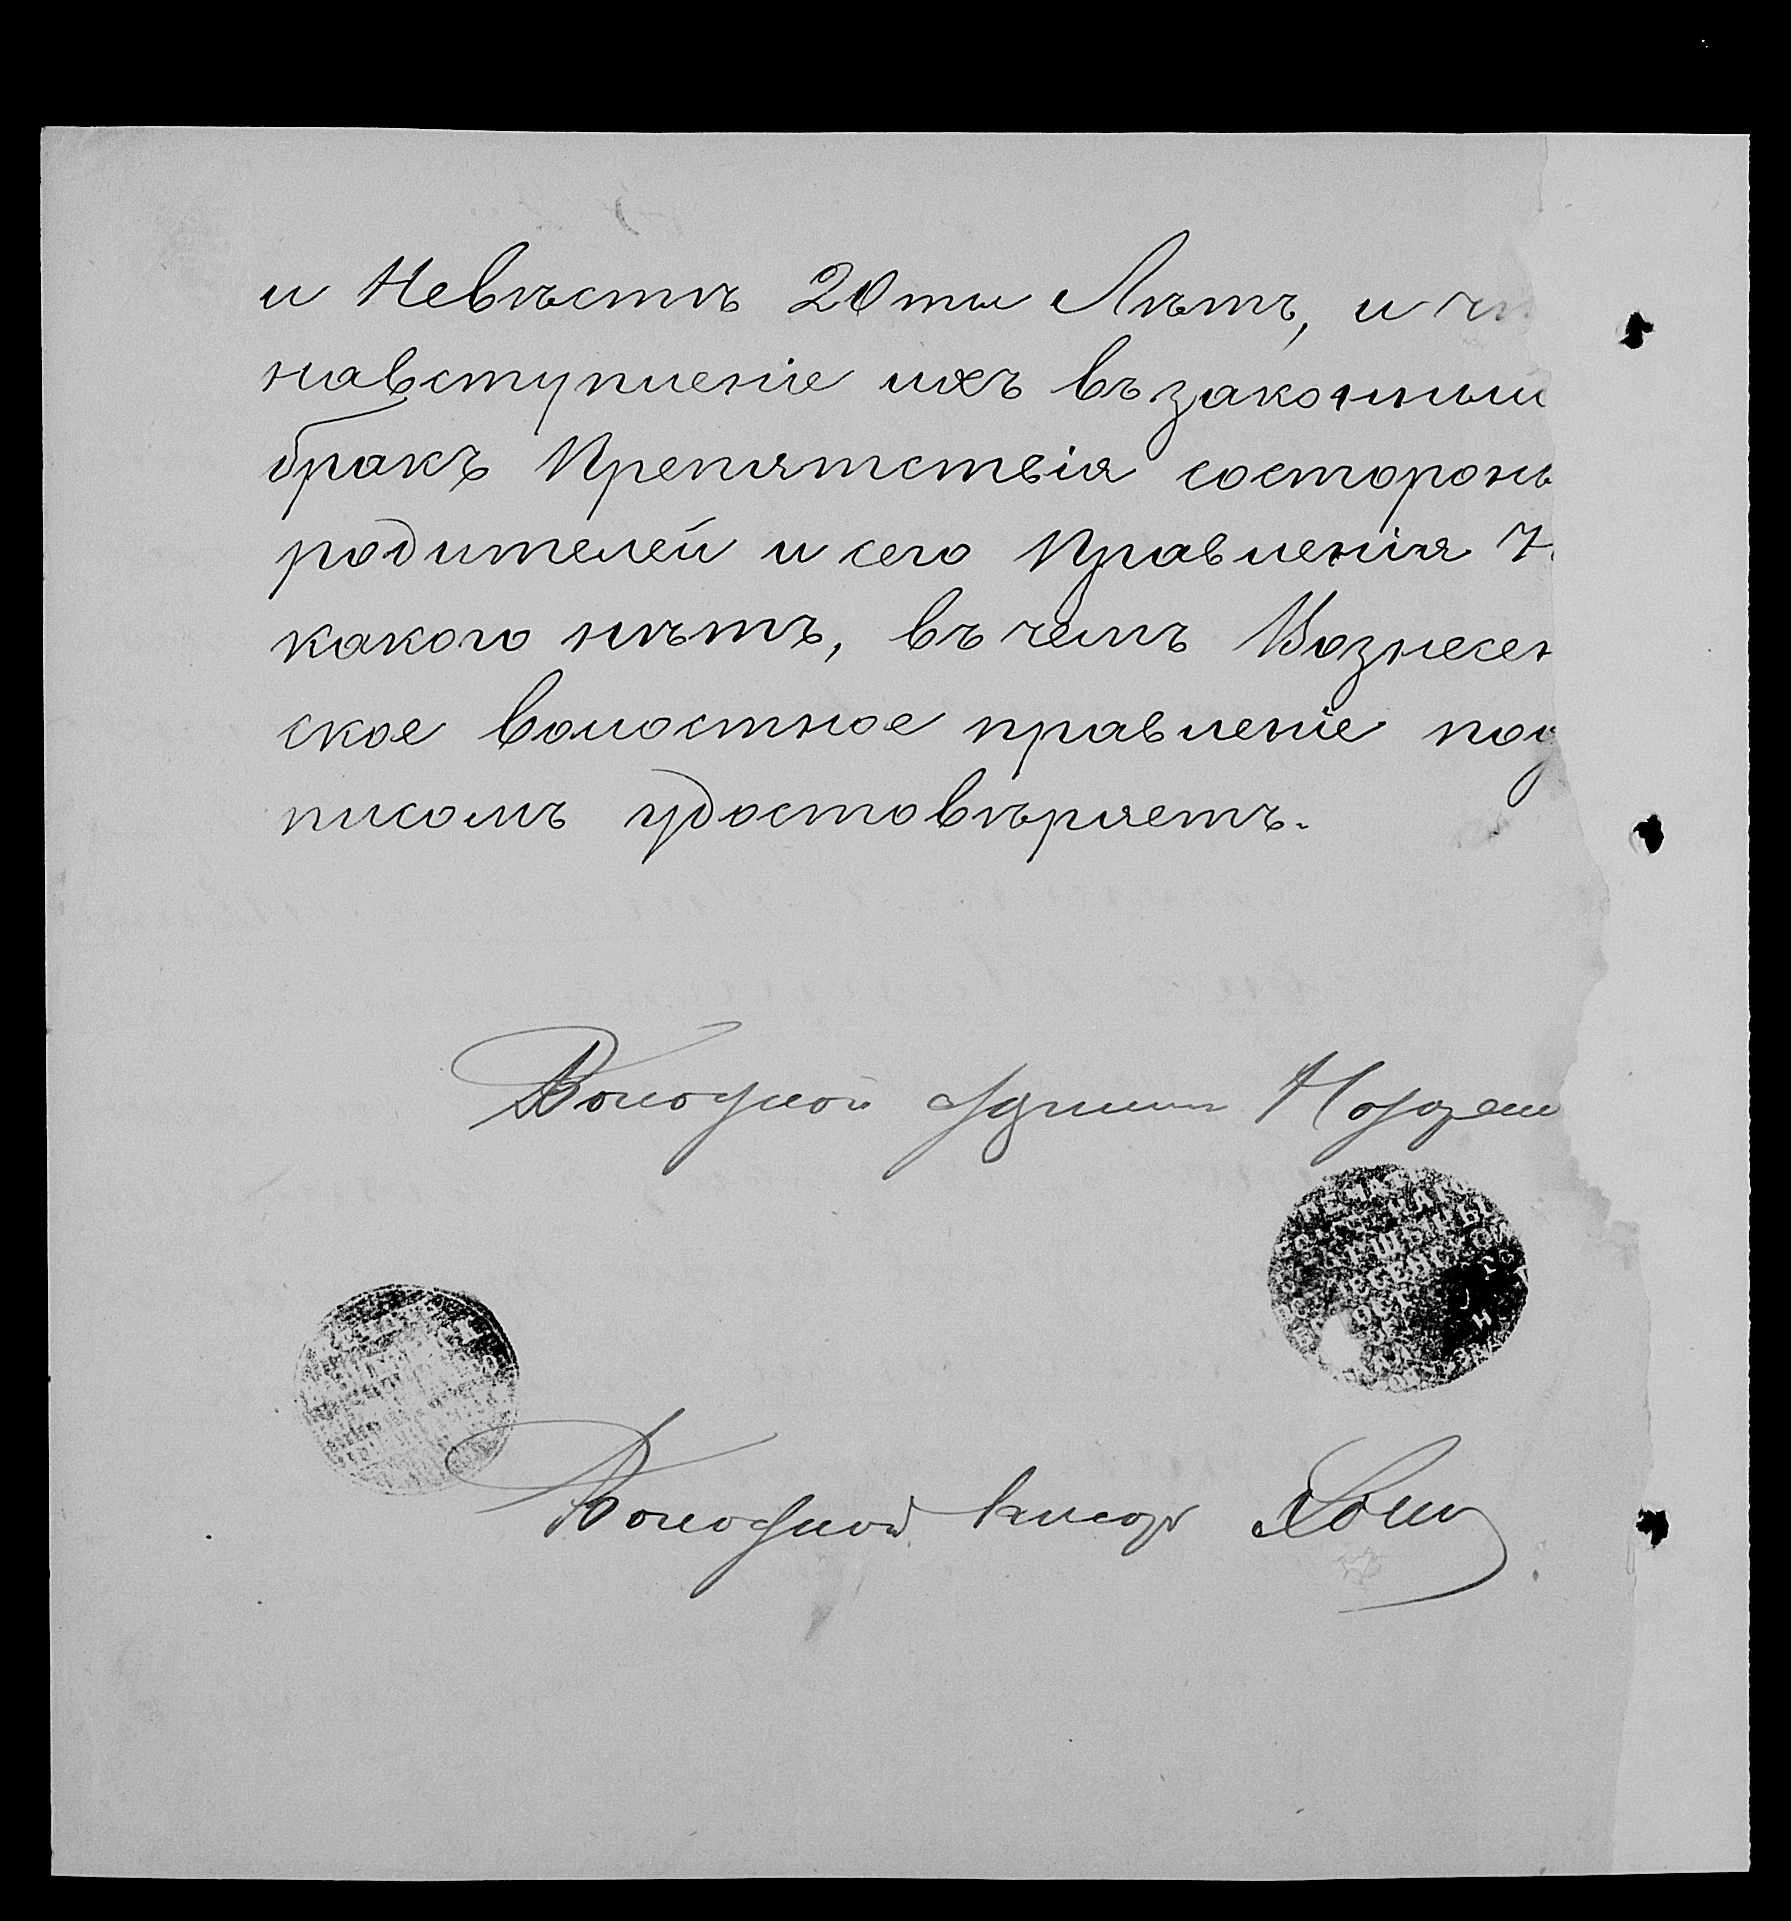 и Невѣстѣ 20ти Лѣтъ, и
навступленіе ихъ въ законный
бракъ Препятствія состороны
родителей и сего Правленія
какого нѣтъ, въ чемъ Вознесен
ское волостное правленіе под
писомъ удостовѣряетъ.
Волостной
Волостной писарь